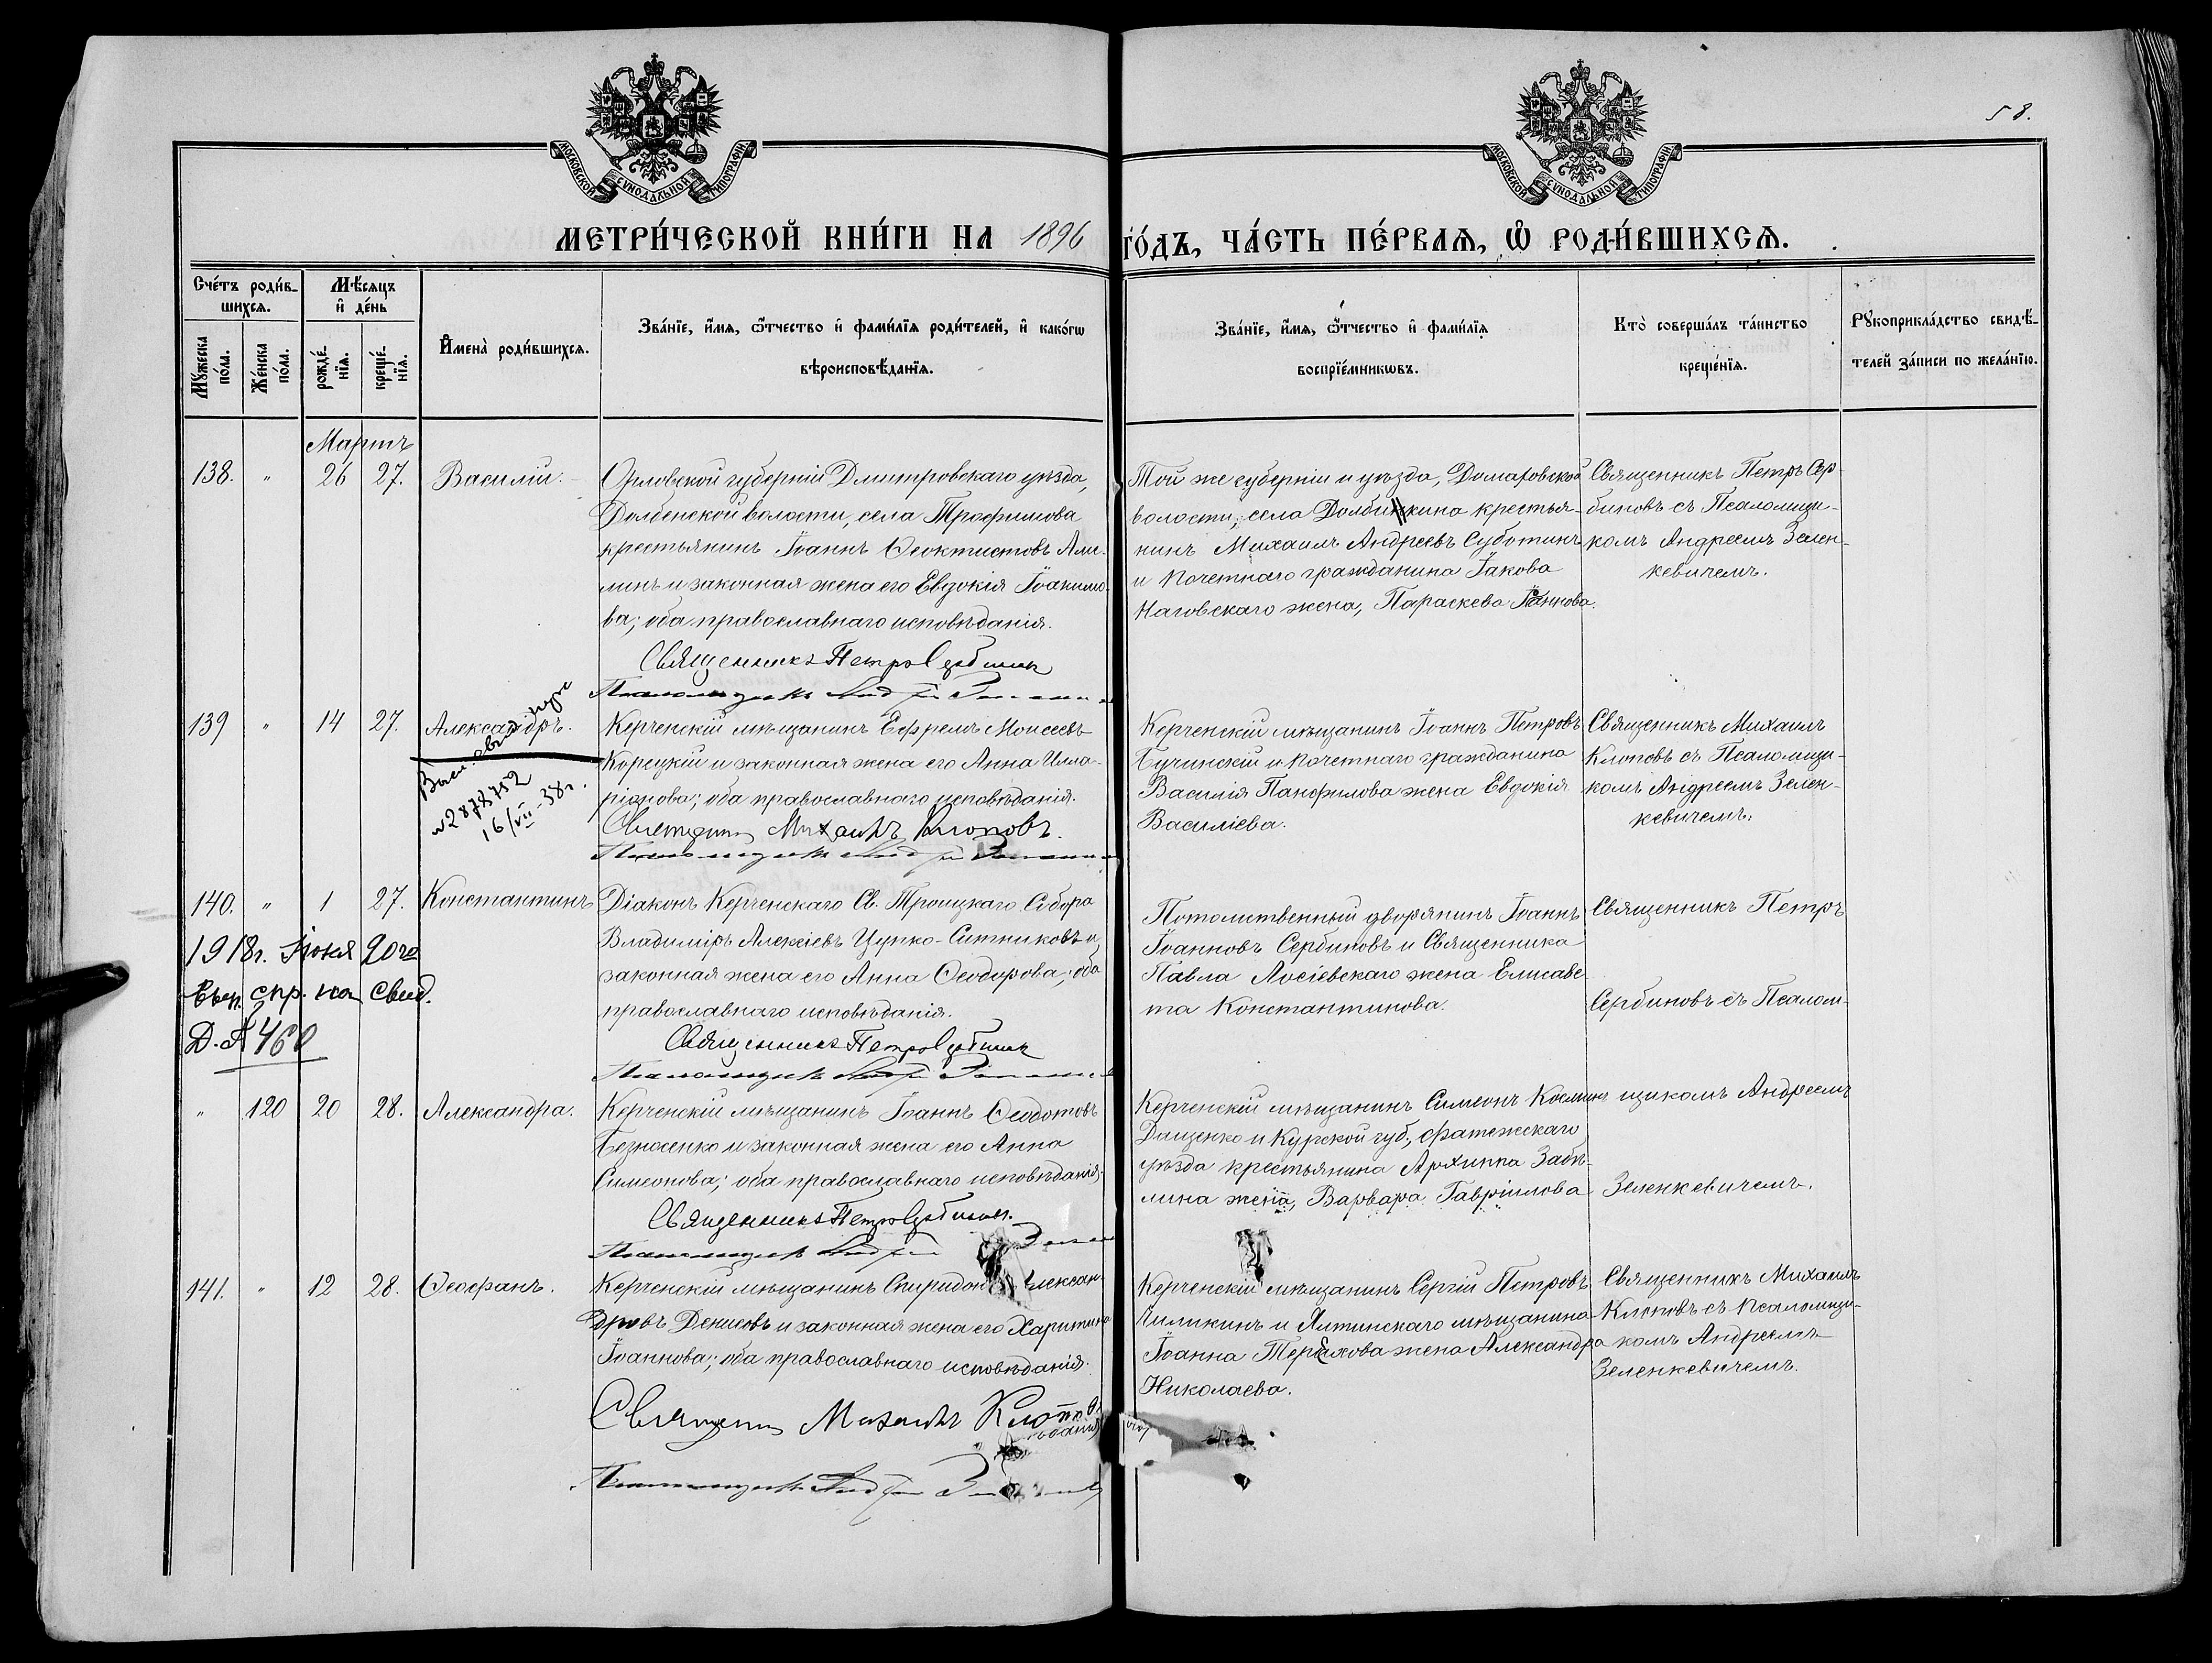 58.
МОСКОВСКОЙ СѴНОДАЛЬНОЙ ТИПОГРАФІИ
МОСКОВСКОЙ СѴНОДАЛЬНОЙ ТИПОГРАФІИ
МЕТРИ́ЧЕСКОЙ КНИ́ГИ НА 1896 ГО́ДЪ, ЧА́СТЬ ПЕ́РВАЯ, Ѡ҆ РОДИ́ВШИХСЯ.
Сче́тъ роди́в-
шихся.
Мѣ́сяцъ
и҆ де́нь
Мꙋ́жеска
по́ла.
Же́нска
по́ла.
рожде́-
нїя.
креще́-
нїя.
И҆мена̀ роди́вшихся.
Зва́нїе, и҆́мя, ѻ҆́тчество и҆ фами́лїя роди́телей, и҆ како́гѡ
вѣроисповѣ́данїя.
Зва́нїе, и҆́мя, ѻ҆́тчество и҆ фами́лїя
воспрїе́мникѡвъ.
Кто̀ соверша́лъ та́инство
креще́нїя.
Рꙋкоприкла́дство свидѣ́-
телей за́писи по жела́нїю.
Мартъ
138. " 26 27. Василій.
Орловской губерніи Дмитровскаго уѣзда,
Долбенской волости, села Трофимова
крестьянинъ Іоаннъ Ѳеоктистовъ Али-
минъ и законная жена его Евдокія Іоакимо-
ва; оба православнаго исповѣданія.
Священникъ Петръ Сербиновъ
Псаломщикъ Андрей
Той же губерніи и уѣзда, Домаховской
волости, села Долбинкина крестья-
нинъ Михаилъ Андреевъ Суботинъ
и почетнаго гражданина Іакова
Наговскаго жена, Параскева Іоаннова.
Священникъ Петръ Сер-
биновъ съ Псаломщи-
комъ Андреемъ Зелен-
кевичемъ.
139 " 14 27. Александръ.
№2878752
16/VII-38г.
Керченскій мѣщанинъ Ефремъ Моисеевъ
Корецкій и законная жена его Анна Илла-
ріонова; оба православнаго исповѣданія.
Священникъ Михаилъ Клоповъ.
Псаломщикъ Андрей
Керченскій мѣщанинъ Іоаннъ Петровъ
Бучинскій и почетнаго гражданина
Василія Панфилова жена Евдокія
Василіева.
Священникъ Михаилъ
Клоповъ съ Псаломщи-
комъ Андреемъ Зелен-
кевичемъ.
140. " 1 27. Константинъ
1918г. Іюня 20го
спр. на свид.
460
Діаконъ Керченскаго Св. Троицкаго Собора
Владиміръ Алексіевъ Цупко-Ситниковъ и
законная жена его Анна Ѳеодорова; оба
православнаго исповѣданія.
Священникъ Петръ Сербиновъ
Псаломщикъ Андрей
Потомственный дворянинъ Іоаннъ
Іоанновъ Сербиновъ и Священника
Павла Лосіевскаго жена Елисаве-
та Константинова.
Священникъ Петръ
Сербиновъ съ Псалом-
" 120 20 28. Александра.
Керченскій мѣщанинъ Іоаннъ Ѳеодотовъ
Безносенко и законная жена его Анна
Симеонова; оба православнаго исповѣданія;
Священникъ Петръ Сербиновъ.
Псаломщикъ Андрей
Керченскій мѣщанинъ Симеонъ Косминъ
Даценко и Курской губ., Фатежскаго
уѣзда крестьянина Архиппа Забѣ-
лина жена, Варвара Гавріилова
щикомъ Андреемъ
Зеленкевичемъ.
141. " 12 28. Ѳеофанъ.
Керченскій мѣщанинъ Спиридонъ Алексан-
дровъ Денисовъ и законная жена его Харитина
Іоаннова; оба православнаго исповѣданія.
Священникъ Михаилъ Клоповъ
Псаломщикъ Андрей
Керченскій мѣщанинъ Сергій Петровъ
Пиликинъ и Ялтинскаго мѣщанина
Іоанна Терехова жена Александра
Николаева.
Священникъ Михаилъ
Клоповъ съ Псаломщи-
комъ Андреемъ
Зеленкевичемъ.